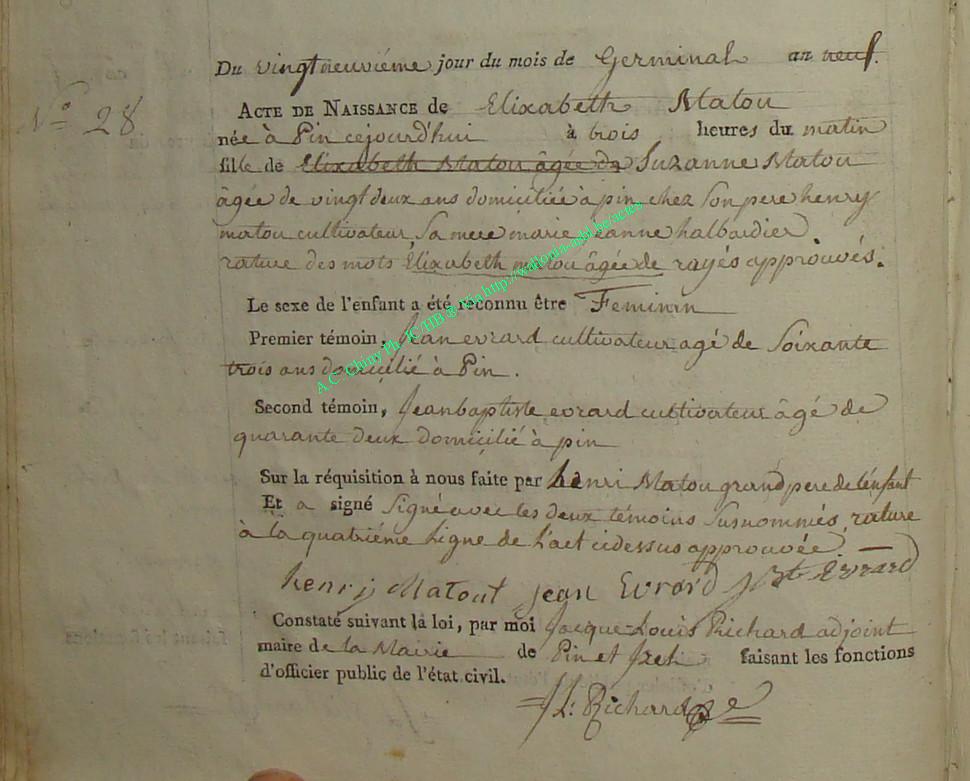 Du vingt neuviéme jour du mois de Germinal an neuf.
N.º 28.
ACTE DE NAISSANCE de Elixabeth Matou
née à Pin cejourd'hui à trois heures du matin
fille de Elixabeth Matou âgée de Suzanne Matou
âgée de vingt deux ans domiciliée à pin chez son pere henry
matou cultivateur, Sa mere marie jeanne halbardier
rature des mots Elixabeth matou âgée de rayés approuvés.
Le sexe de l'enfant a été reconnu être Feminin
Premier témoin, Jean evrard cultivateur agé de Soixante
trois ans domicilié à Pin.
Second témoin, Jeanbaptiste evrard cultivateur âgé de
quarante deux domicilié à pin
Sur la réquisition à nous faite par henri Matou grand pere de l'enfant
Et a signé Signé avec les deux témoins Susnommés, rature
à la quatriéme ligne de l'act cidessus approuvée.
henrij Matout jean Evrard JBt Evrard
Constaté suivant la loi, par moi Jacque Louis Richard adjoint
maire de la Mairie de Pin et Izel faisant les fonctions
d'officier public de l'état civil.
JL: Richard
A.C. Chiny Ph. JC/HB @ via http://wallonia-asbl.be/actes